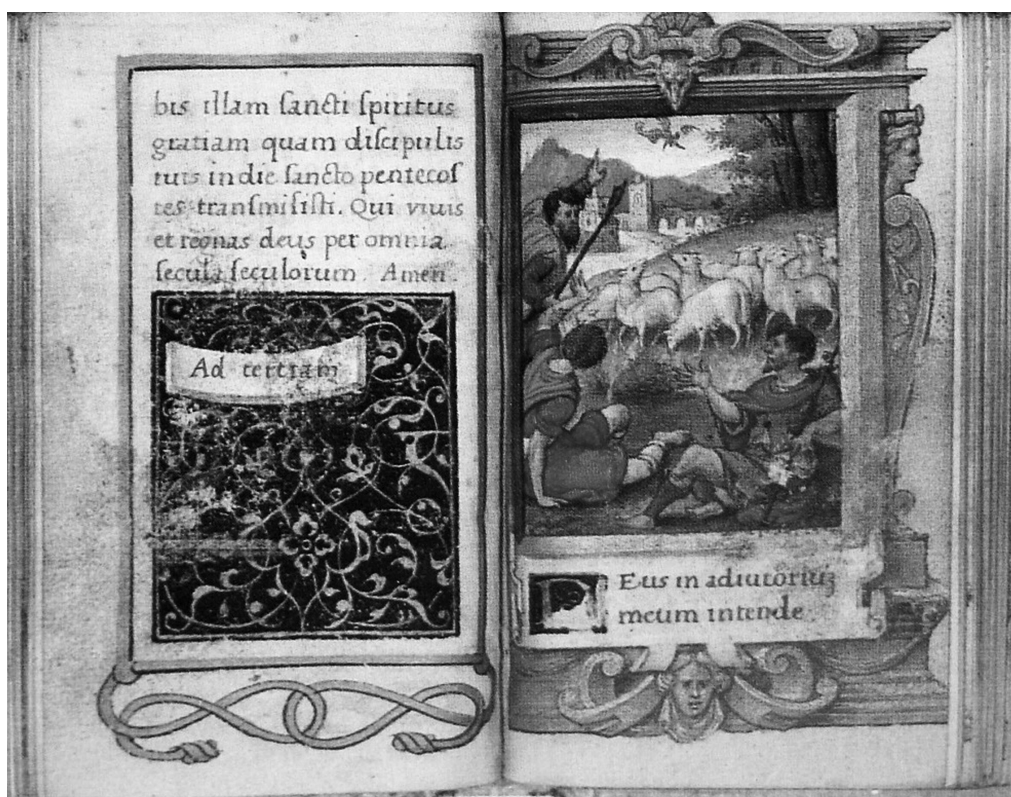 bis illam sancti spiritus
gratiam quam discipulis
tuis in die sancto pentecos
tes transmisisti. Qui vivis
et regnas deus per omnia
secula seculorum. Amen.
Ad tertiam
DEus in adiutoriuʒ
meum intende